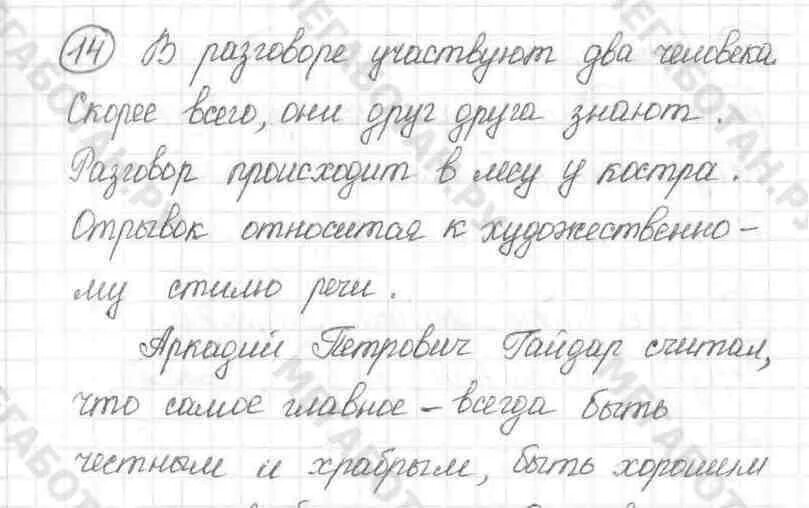 14 В разговоре участвуют два человека.
Скорее всего, они друг друга знают.
Разговор происходит в лесу у костра.
Отрывок относится к художественно-
му стилю речи.
Аркадий Петрович Гайдар считал,
что самое главное – всегда быть
честным и храбрым, быть хорошим